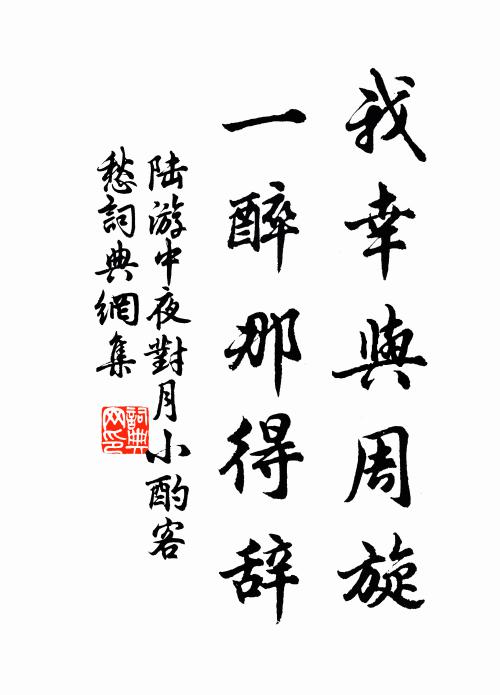 我幸與周旋
一醉那得辞
陆游中夜對月小酌客
愁詞典網集
詞典网印